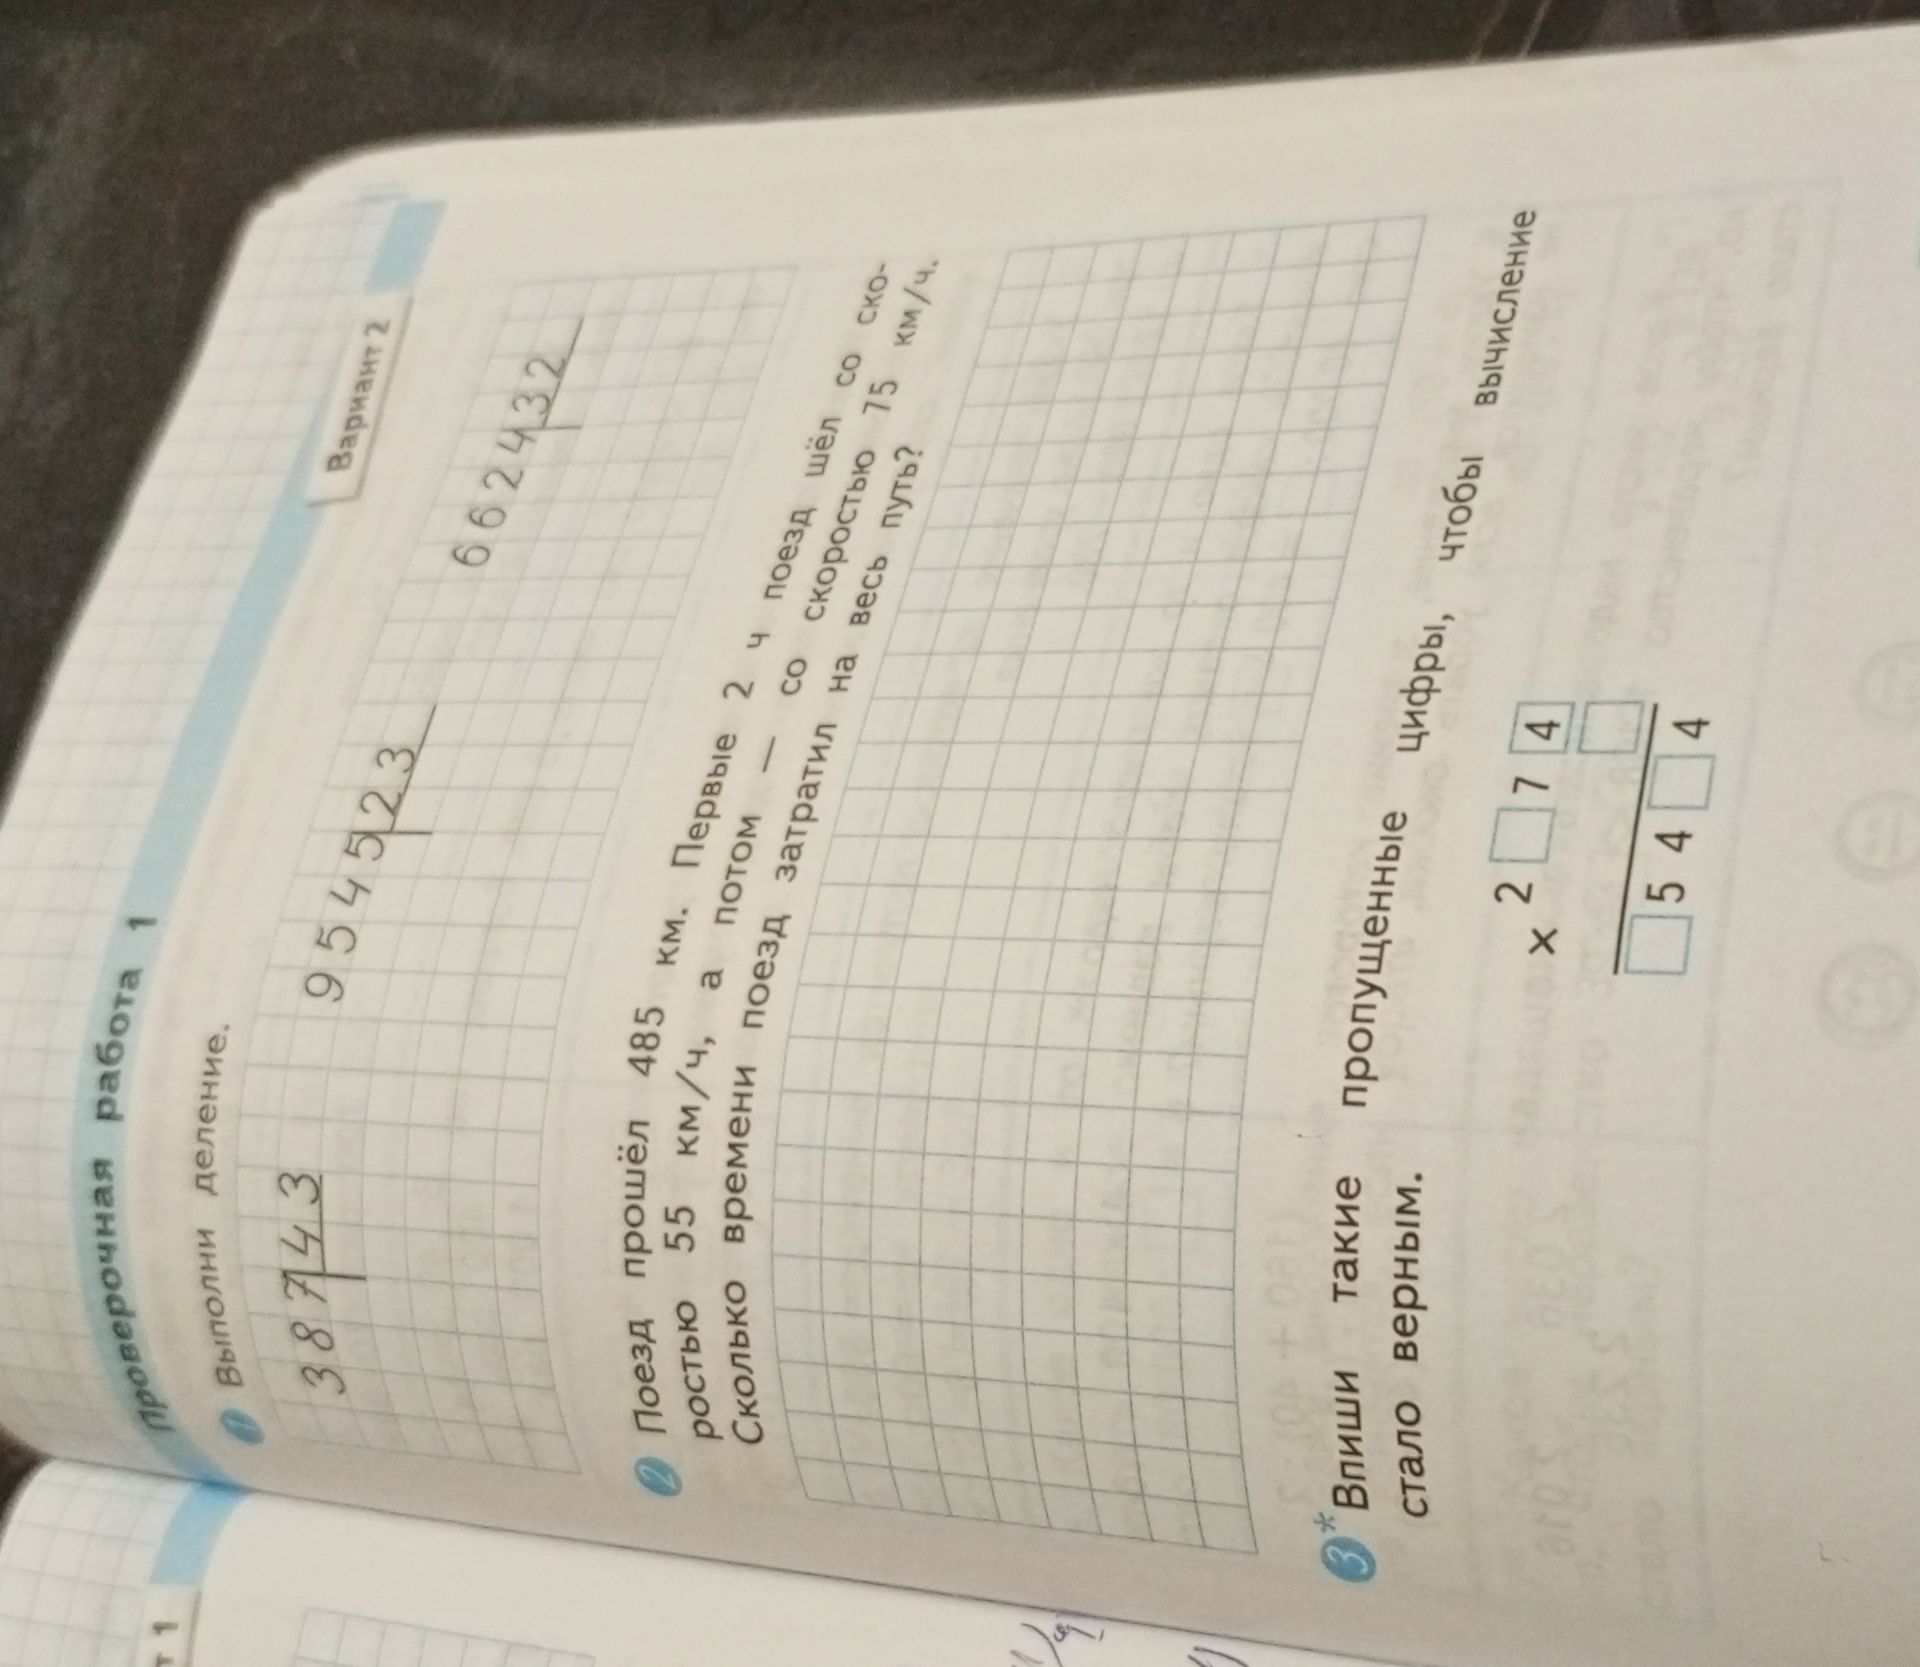 Проверочная работа 1
Вариант 2
1 Выполни деление.
387 43 95455 23 66244 32
2 Поезд прошёл 485 км. Первые 2 ч поезд шёл со ско-
ростью 55 км/ч, а потом — со скоростью 75 км/ч.
Сколько времени поезд затратил на весь путь?
3* Впиши такие пропущенные цифры, чтобы вычисление
стало верным.
× 2 □ 7 4
□
□ 5 4 □ 4
т 1